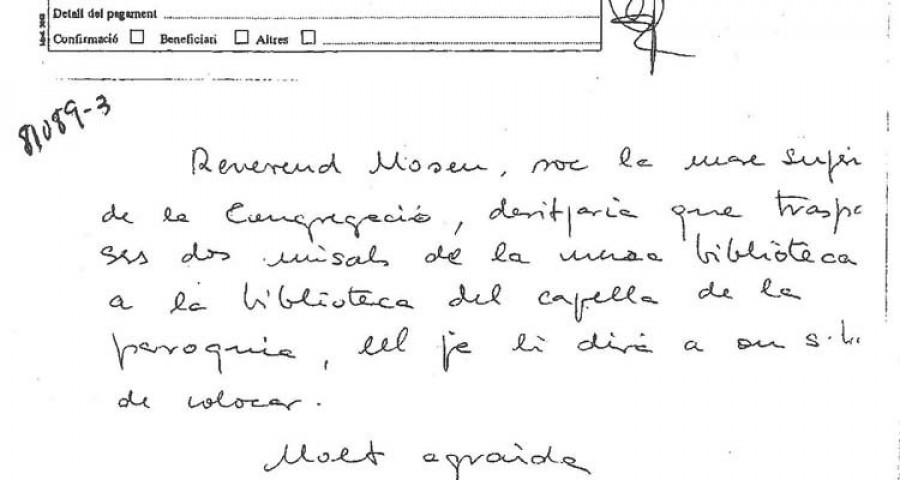 Detall del pagament
Confirmació Beneficiari Altres
81089-3
Reverend Mosen, soc la mare super
de la Congregació, desitjaria que traspa
ses dos misals de la meva biblioteca
a la biblioteca del capella de la
paroquia, ell ja li dirà a on s.h.
de colocar.
Molt agraida